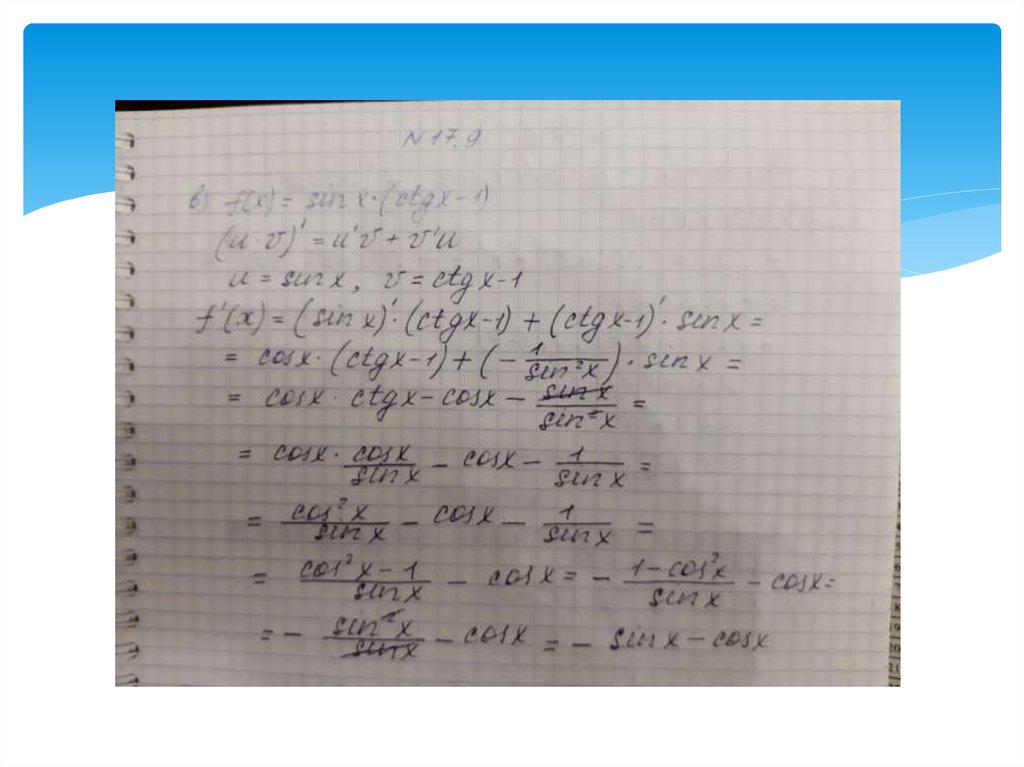 N 17.9
в) f(x) = sin x·(ctgx-1)
(u·v)' = u'v + v'u
u = sin x, v = ctg x-1
f'(x) = (sin x)'·(ctgx-1) + (ctgx-1)'·sin x =
= cosx·(ctgx-1) + (- 1/sin²x)·sin x =
= cosx · ctgx - cosx - sin x/sin²x =
= cosx· cosx/sin x - cosx - 1/sin x =
= cos²x/sin x - cosx - 1/sin x =
= cos²x-1/sin x - cosx = - 1-cos²x/sin x - cosx=
= - sin²x/sinx - cosx = - sin x - cosx